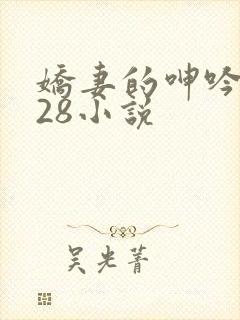 嬌妻的呻吟
28小說
吴光菁